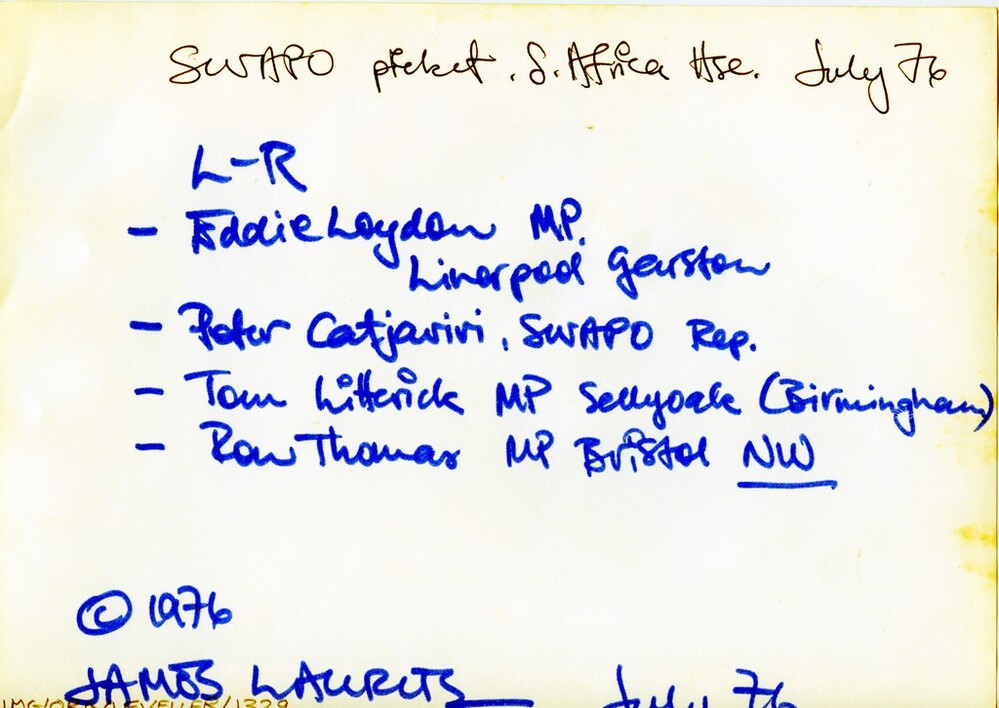 SWAPO picket. S. Africa Hse. July 76
L-R
- Eddie Loydon MP.
Liverpool Garston
- Peter Catjavivi, SWAPO Rep.
- Tom Litterick MP Sellyoak (Birmingham)
- Ron Thomas MP Bristol NW
© 1976
JAMES July 76